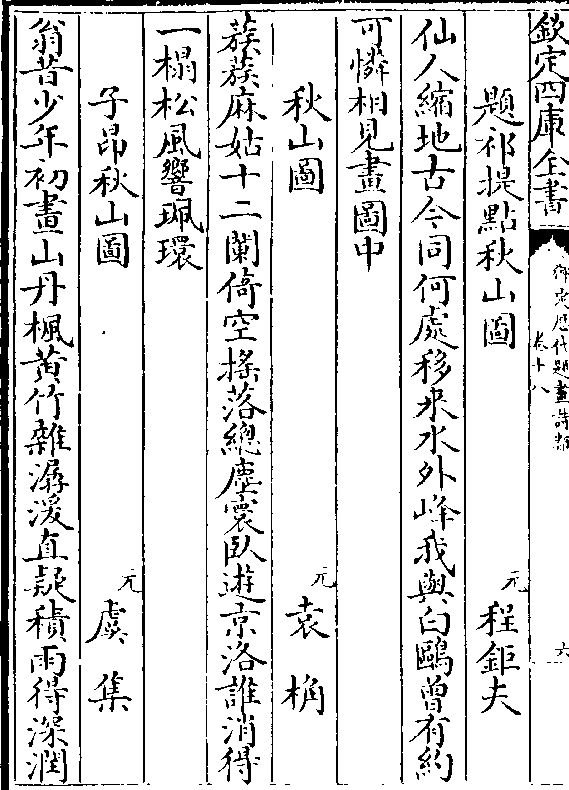 欽定四庫全書
御定歷代題畫詩類
卷十八
六
題祁提點秋山圖
元程鉅夫
仙人縮地古今同何處移來水外峰我與白鷗曾有約
可憐相見畫圖中
秋山圖
元袁桷
蔟蔟麻姑十二闌倚空搖落總塵寰臥遊京洛誰消得
一榻松風響珮環
子昂秋山圖
元虞集
翁昔少年初畫山丹楓黃竹雜潺湲直疑積雨得深潤